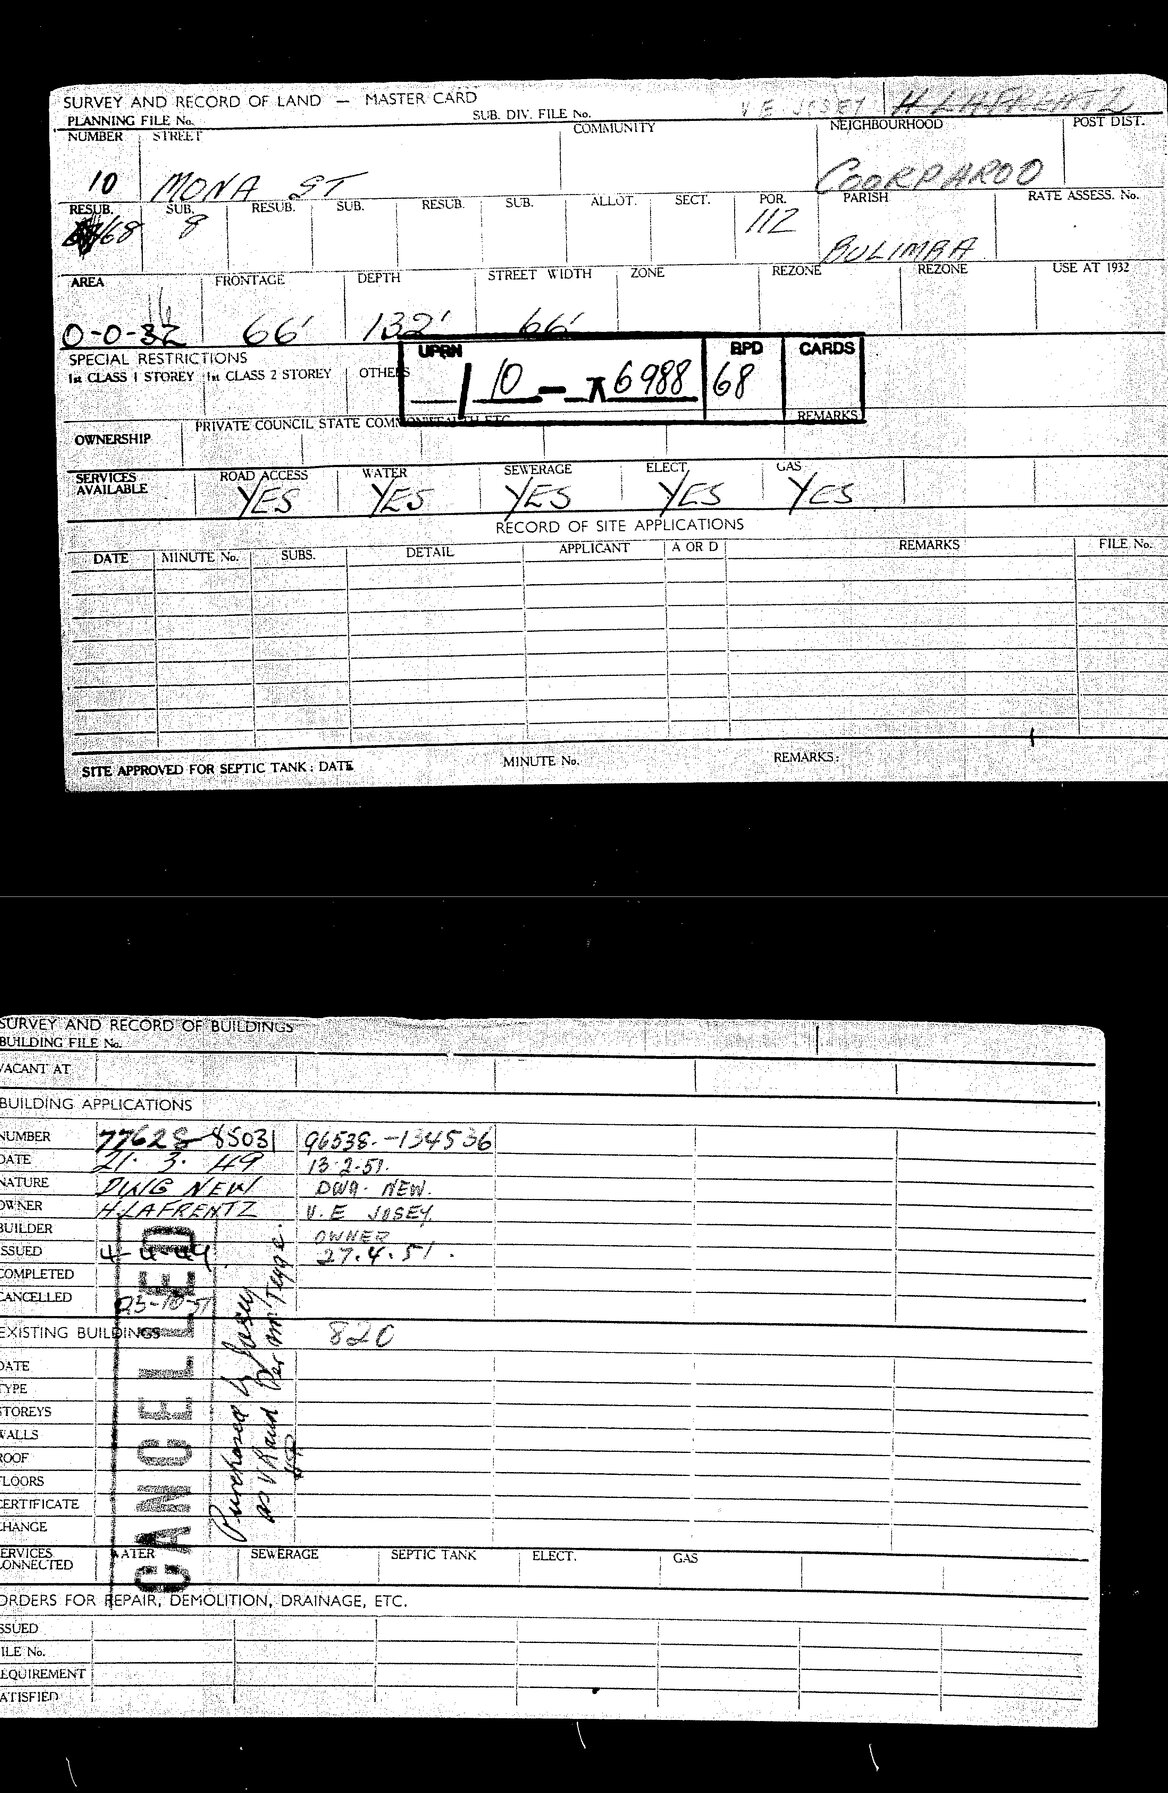 SURVEY AND RECORD OF LAND — MASTER CARD
V E JOSEY H LAFRENTZ
PLANNING FILE No. SUB. DIV. FILE No.
NUMBER STREET COMMUNITY NEIGHBOURHOOD POST DIST.
10 MONA ST COORPAROO
RESUB. SUB. RESUB. SUB. RESUB. SUB. ALLOT. SECT. POR. PARISH RATE ASSESS. No.
68 8 112 BULIMBA
AREA FRONTAGE DEPTH STREET WIDTH ZONE REZONE REZONE USE AT 1932
16
0-0-32 66' 132' 66'
SPECIAL RESTRICTIONS
1st CLASS 1 STOREY 1st CLASS 2 STOREY OTHERS
UPRN BPD CARDS
/ 10 - 6988 68
REMARKS
OWNERSHIP PRIVATE COUNCIL STATE COMMONWEALTH ETC.
SERVICES AVAILABLE ROAD ACCESS WATER SEWERAGE ELECT. GAS
YES YES YES YES YES
RECORD OF SITE APPLICATIONS
DATE MINUTE No. SUBS. DETAIL APPLICANT A OR D REMARKS FILE No.
SITE APPROVED FOR SEPTIC TANK: DATE MINUTE No. REMARKS:
SURVEY AND RECORD OF BUILDINGS
BUILDING FILE No.
VACANT AT
BUILDING APPLICATIONS
NUMBER 77628 85031 96538.-134536
DATE 21. 3. 49 13.2.51.
NATURE DWG NEW DWG. NEW.
OWNER H.LAFRENTZ V.E JOSEY.
BUILDER OWNER
ISSUED 4-4-49 27.4.51.
COMPLETED
CANCELLED 23-10-51
CANCELLED
Purchased by Josey
as V Land Per
EXISTING BUILDINGS 820
DATE
TYPE
STOREYS
WALLS
ROOF
FLOORS
CERTIFICATE
CHANGE
SERVICES CONNECTED WATER SEWERAGE SEPTIC TANK ELECT. GAS
ORDERS FOR REPAIR, DEMOLITION, DRAINAGE, ETC.
ISSUED
FILE No.
REQUIREMENT
SATISFIED